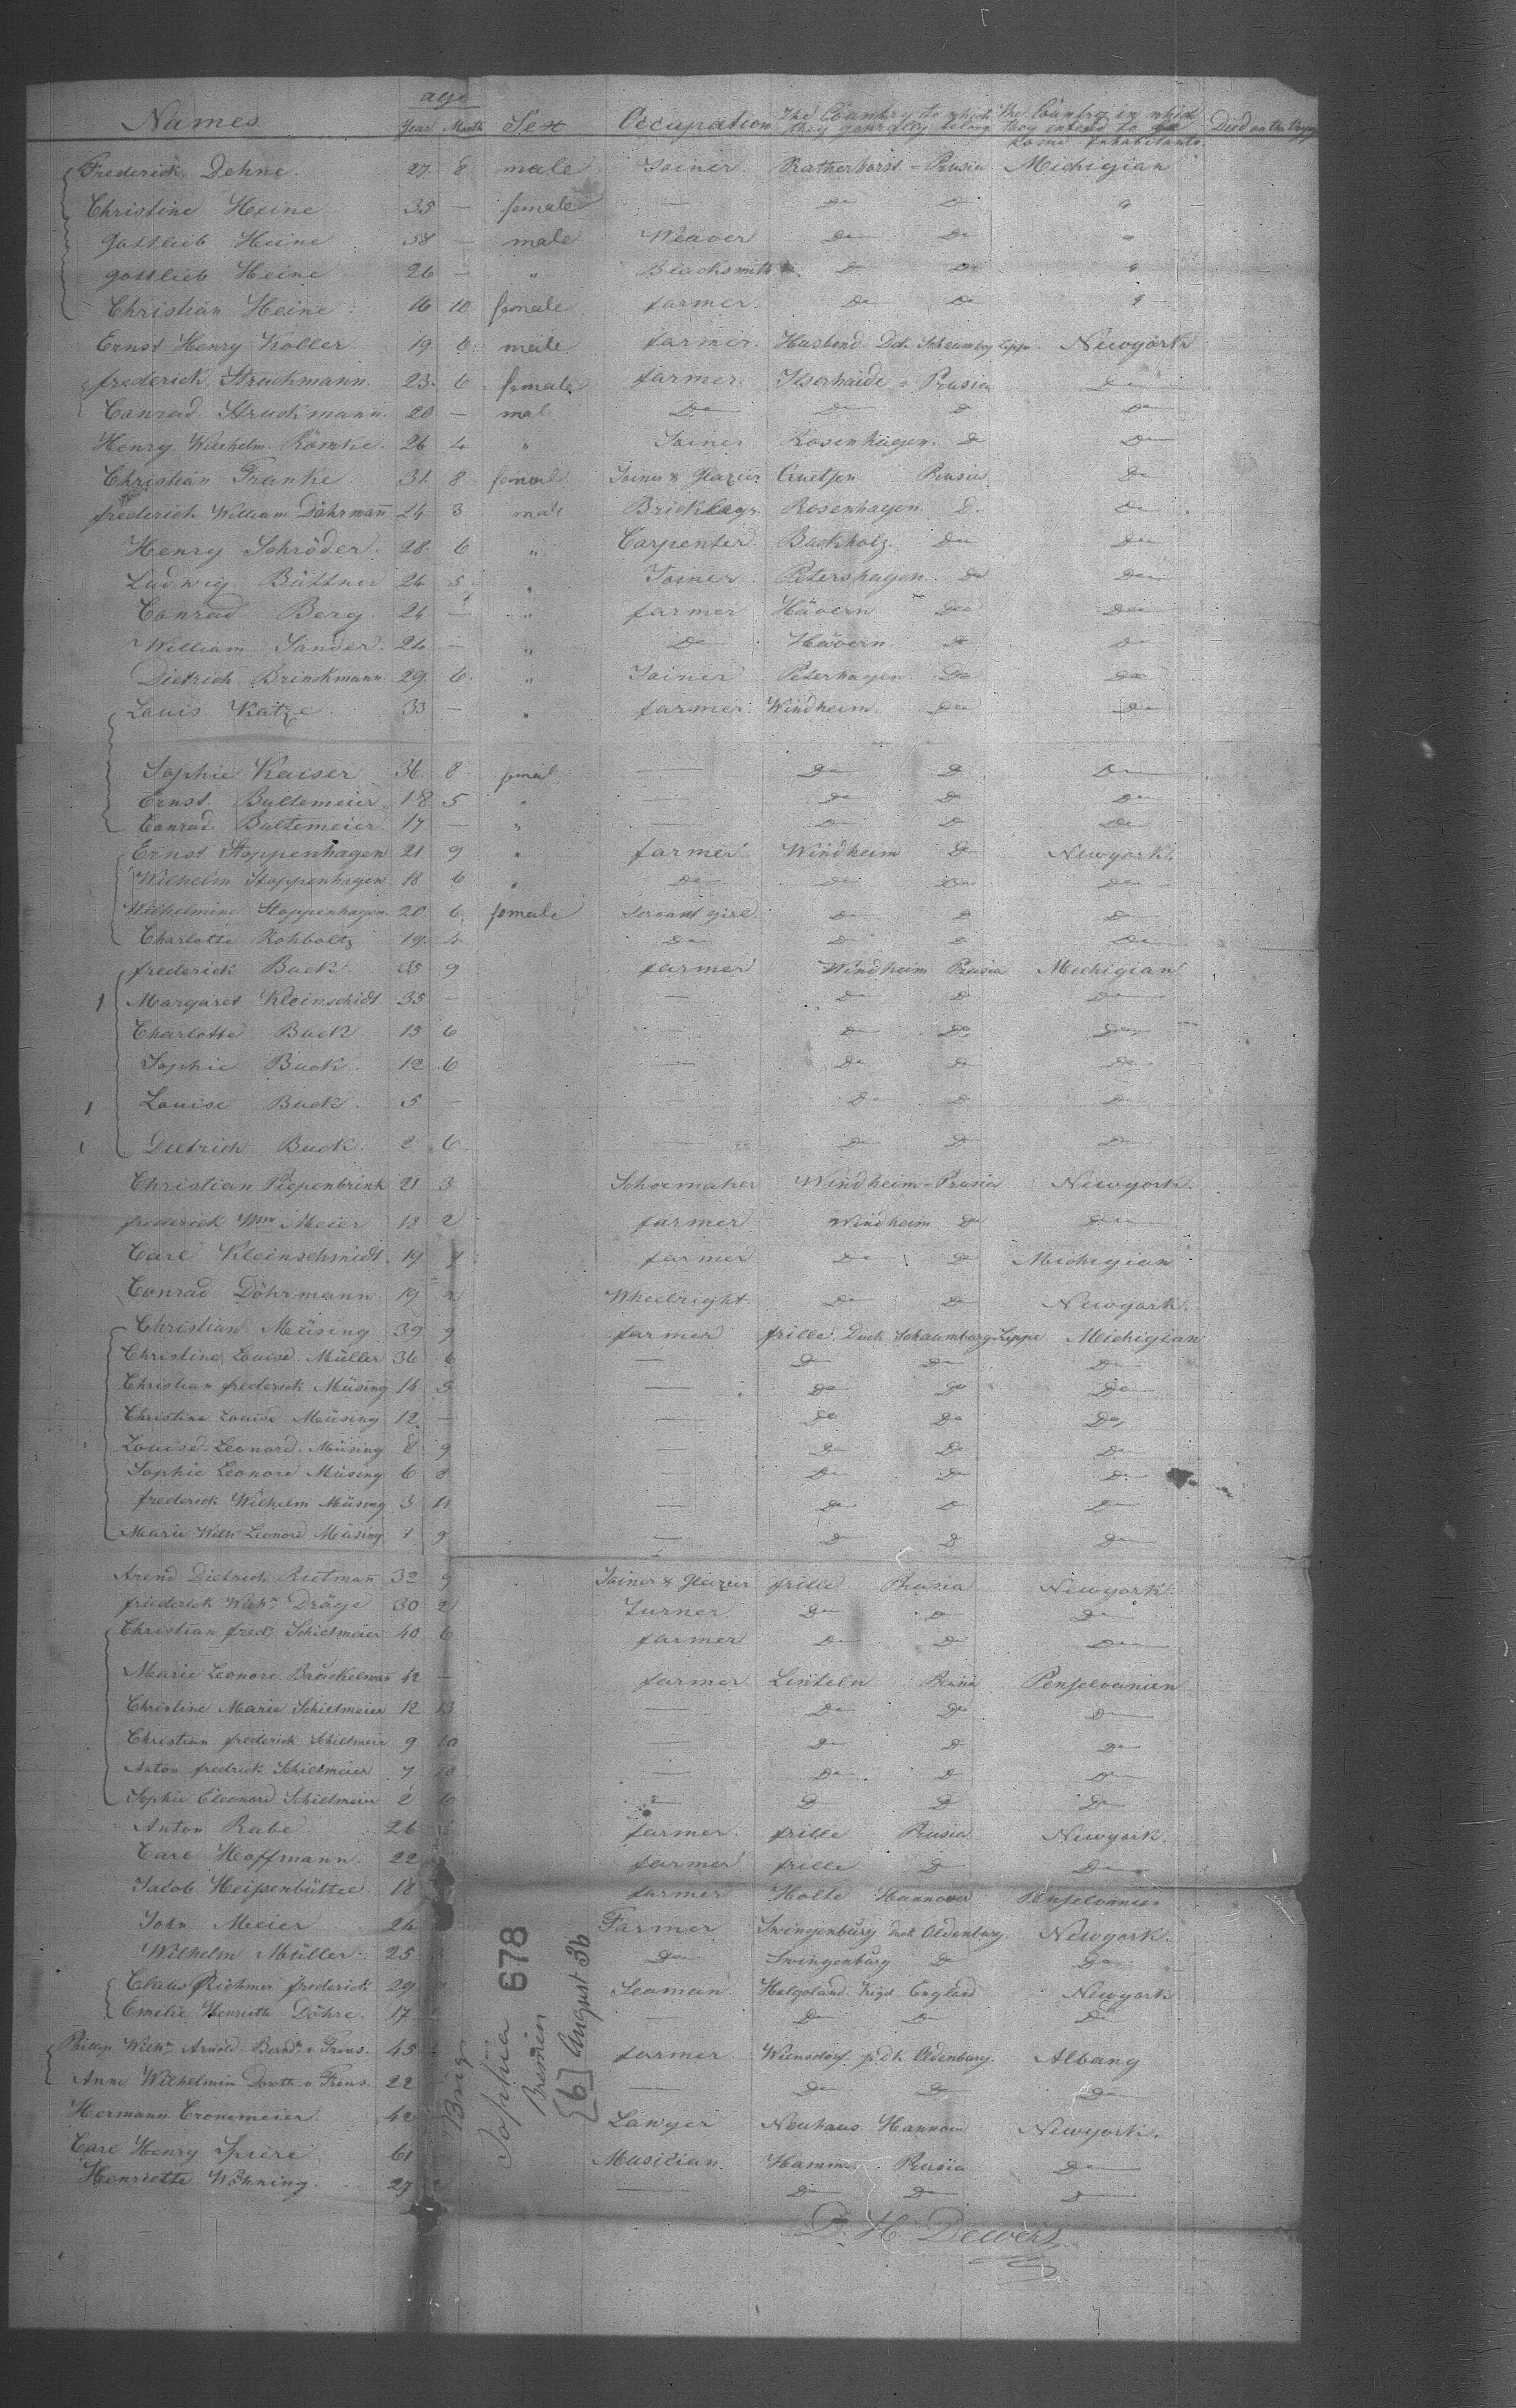 Names age Year Month Sex Occupation The Country to which they generally belong The Country in which they intend to become Inhabitants. Died on the Voyage
Frederick Dehne. 27. 8 male Joiner. Ratherhorst - Prusia Michigian
Christine Heine 35 — female — Do Do "
Gottlieb Heine 58 — male Weaver Do Do "
gottlieb Heine 26 — " Blacksmith Do Do "
Christian Heine 16 10. female farmer. Do Do "
Ernst Henry Koller 19. 6. male farmer. Husbend. Dch. Schaumbg Lippe. Newyork
frederick Struckmann. 23. 6. female farmer. Ilserheide - Prusia Do
Conrad Struckmann. 20 — mal Do Do Do Do
Henry Wilhelm Römke. 26 4 " Joiner Rosenhagen. Do Do
Christian Franke. 31. 8 femal Joiner & Glazier Quetzen Prusia Do
frederich William Döhrmann 24 3 male Bricklayr. Rosenhagen. D. Do
Henry Schröder. 28. 6 " Carpenter Buckholz. Do Do
Ludwig Büttner 24 5 " Joiner. Petershagen. Do Do
Conrad Berg. 24 — " farmer Hävern Do Do
William Sander. 24 — " Do Hävern. Do Do
Dietrich Brinckmann 29. 6. " Joiner Peterhagen. Do Do
Louis Katze 33 — " farmer. Windheim. Do Do
Sophie Kaiser 36. 8. femal — Do Do Do
Ernst. Bultemeier. 18 5 " — Do Do Do
Conrad. Bultemeier. 17 — " — Do Do Do
Ernst Stoppenhagen 21 9 " farmer. Windheim Do Newyork.
Wilhelm Stoppenhagen 18 6 " Do Do Do Do
Wilhelmine Stoppenhagen. 20 6. female Servant girl. Do Do Do
Charlotte Rohboltz 19. 4. Do Do Do Do
frederick Buck 35 9 farmer Windheim Prusia Michigian
Margaret Kleinschidt. 35 — — Do Do Do
Charlotte Buck 15 6 — Do Do Do
Sophie Buck. 12 6 — Do Do Do
Louise Buck. 5 — — Do Do Do
Dietrich Buck. 2 6. — Do Do Do
Christian Piepenbrink 21 3 Schoemaker Windheim - Prusia Newyork.
frederick Wm Meier 18 2 farmer Windheim Do Do
Carl Kleinschmidt. 19. 7 farmer Do Do Michigian
Conrad Döhrmann 19 2 Wheelright. Do Do Newyork.
Christian Müsing 39 9 farmer frille Duch Schaumburg Lippe Michigian
Christine Louise Müller 36 6 — Do Do Do
Christian frederick Müsing 14 5 — Do Do Do
Christine Louise Müsing 12. — — Do Do Do
Louise Leonore. Müsing 8 9 — Do Do Do
Sophie Leonore Müsing 6 8 — Do Do Do
frederick Wilhelm Müsing 3 11 — Do Do Do
Marie Wilh Leonore Müsing 1 9 — Do Do Do
Arend Dietrich Rietmann 32 9 Joiner & Glazier frille Prusia Newyork.
friederick Wilhm Dräge 30 2 Turner. Do Do Do
Christian fredk Schiltmeier 40 6 farmer Do Do Do
Marie Leonore 42 — farmer Linteln Prusia Penselvanien
Christine Marie Schiltmeier 12 13 — Do Do Do
Christian frederick Schiltmeier 9 10 — Do Do Do
Anton fredrick Schiltmeier 7 10 — Do Do Do
Sophie Eleonore Schiltmeier 2 6 — Do Do Do
Anton Rabe 26 farmer. frille Prusia Newyork.
Carl Hoffmann. 22 farmer frille Do Do
Jacob Heissenbüttel 18 farmer Holte Hannover
John Meier 24 Farmer Swingenburg Duch Oldenburg. Newyork.
Wilhelm Müller. 25 Do Swingenburg Do Do
Claus Richmer frederick 29 Seaman. Helgoland. Kigd England Newyork.
Emilie Henriette Döhre. 17 — Do Do Do
Phillip Wilhm Arnold Bernd v. Frens. 45 farmer. Oldenburg. Albany
Anne Wilhelmine Doroth v Frens. 22 — Do Do Do
Hermann Cronemeier. 42 Lawyer Neuhaus Hannover Newyork.
Carl Henry Spiere 61 Musician. Hamm. Rusia Do
Henriette Wöhning. 27 — Do Do Do
D. H. Dewers
Brig
Sophia 678
Bremen
[6] August 36